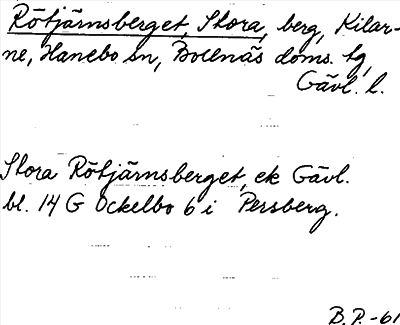 Rötjärnsberget, Stora, berg, Kilar-
ne, Hanebo sn, Bollnäs doms. tg,
Gävl. l.
Stora Rötjärnsberget, ek Gävl.
bl. 14 G Ockelbo 6 i Persberg.
B.P.-61